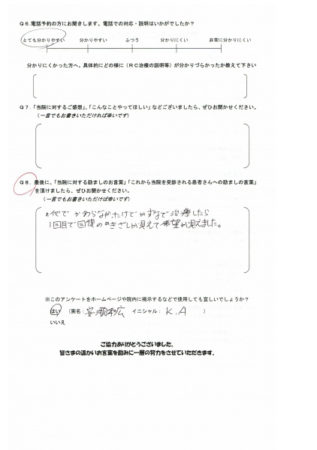 Q6.電話予約の方にお聞きします。電話での対応・説明はいかがでしたか？
とても分かりやすい 分かりやすい ふつう 分かりにくい 非常に分かりにくい
分かりにくかった方へ、具体的にどの様に（RC治療の説明等）が分かりづらかったか教えて下さい
Q7.「当院に対するご感想」、「こんなことやってほしい」などございましたら、ぜひお聞かせください。
（一言でもお書きいただければ幸いです）
Q8.最後に、「当院に対する励ましのお言葉」「これから当院を受診される患者さんへの励ましの言葉」
を頂けましたら、ぜひお聞かせください。
（一言でもお書きいただければ幸いです）
で治療したら
1回目で回復のきざしが見えて希望が見えました。
※このアンケートをホームページや院内に掲示するなどで使用しても宜しいでしょうか？
はい （実名： イニシャル： K.A ）
いいえ
ご協力ありがとうございました。
皆さまの温かいお言葉を励みに一層の努力をさせていただきます。